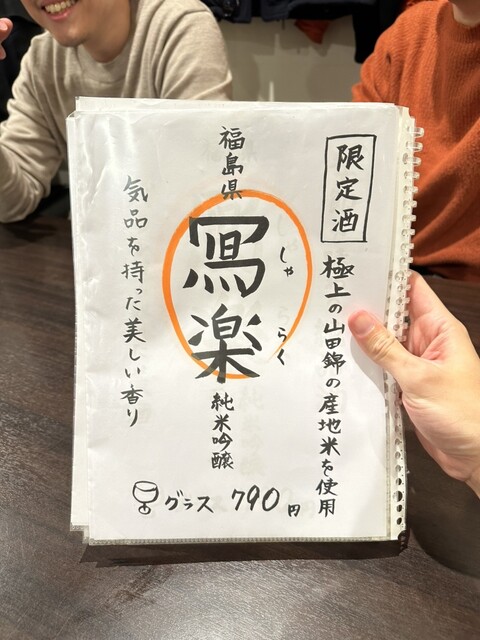 限定酒
極上の山田錦の産地米を使用
福島県
冩楽
しゃらく
純米吟醸
気品を持った美しい香り
グラス 790円